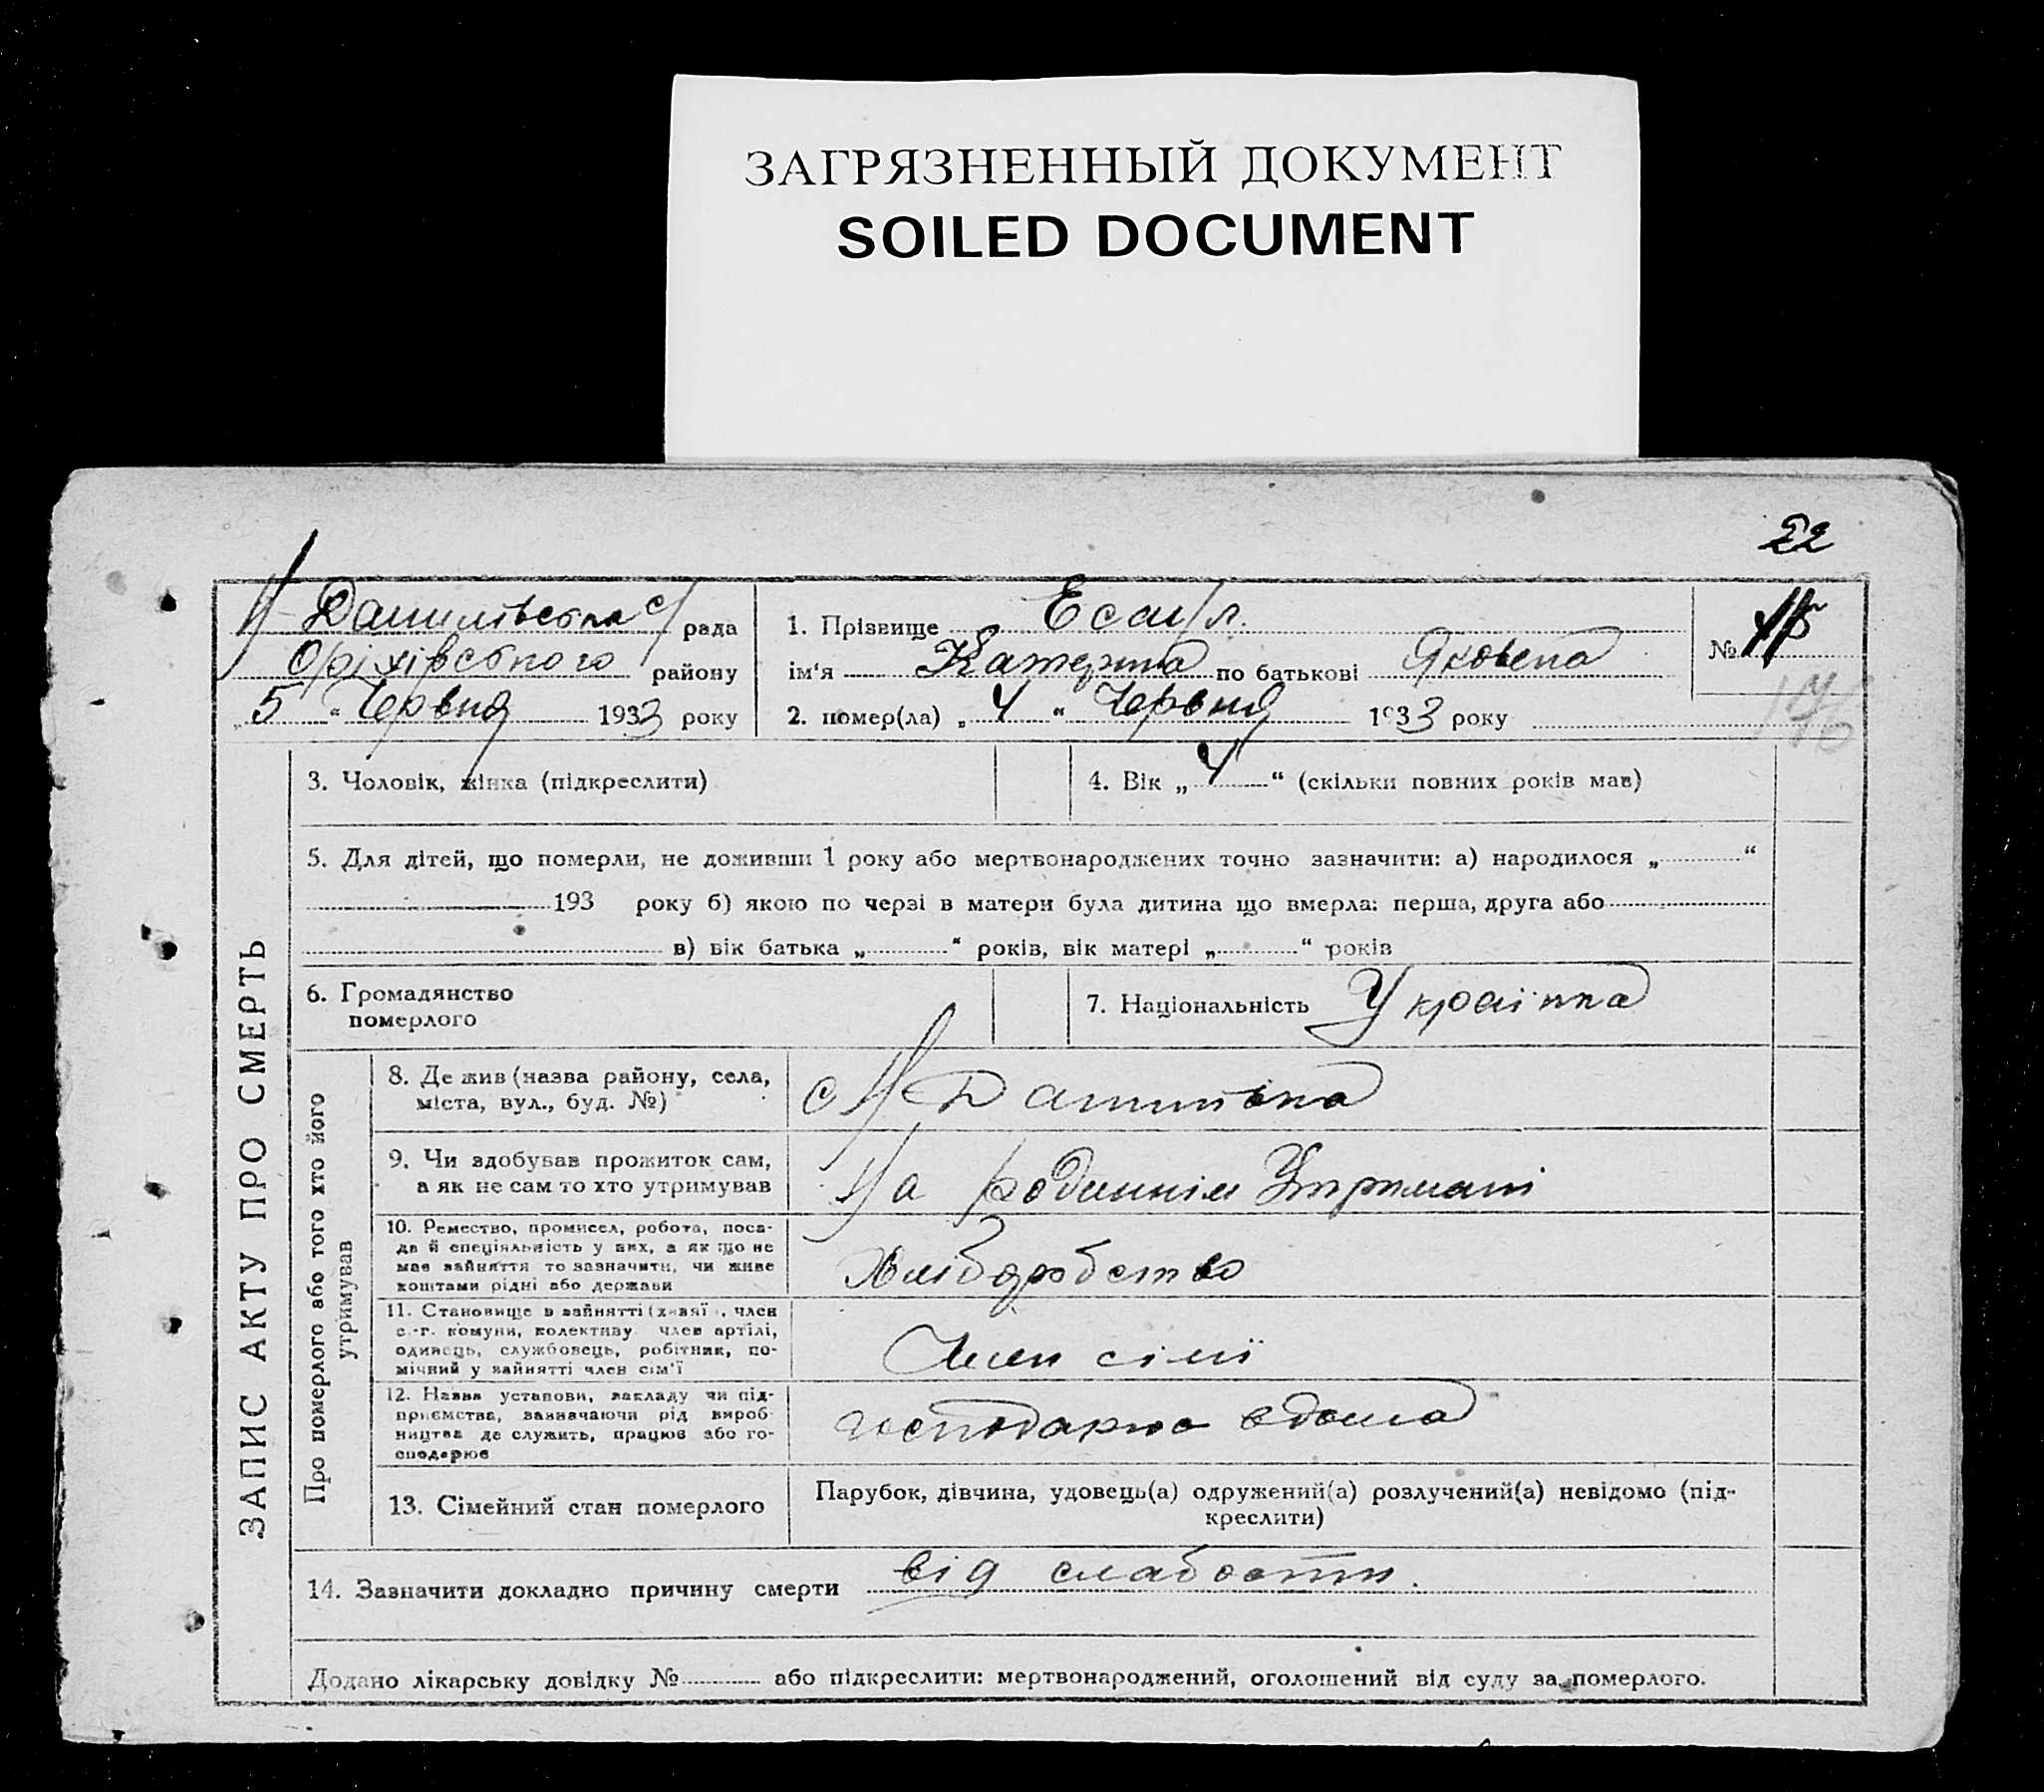 ЗАГРЯЗНЕННЫЙ ДОКУМЕНТ
SOILED DOCUMENT
22
Н-Данилівська с/рада
Оріхівського району
„5“ Червня 1933 року
1. Прізвище
ім'я Катерина по батькові Яковена
2. помер(ла) „4“ Червня 1933 року
№
146
ЗАПИС АКТУ ПРО СМЕРТЬ
3. Чоловік, жінка (підкреслити)
4. Вік „4“ (скільки повних років мав)
5. Для дітей, що померли, не доживши 1 року або мертвонароджених точно зазначити: а) народилося „ “
193 року б) якою по черзі в матери була дитина що вмерла: перша, друга або
в) вік батька „ “ років, вік матері „ “ років
6. Громадянство
померлого
7. Національність Українка
Про померлого або того хто його
утримував
8. Де жив (назва району, села,
міста, вул., буд. №)
с Н Данилівка
9. Чи здобував прожиток сам,
а як не сам то хто утримував
На родиннім Утримані
10. Ремество, промисел, робота, поса-
да й спеціяльність у них, а як що не
має зайняття то зазначити, чи живе
коштами рідні або держави
Хліборобство
11. Становище в зайнятті (хазяї , член
с.-г. комуни, колективу член артілі,
одинець, службовець, робітник, по-
мічний у зайнятті член сім'ї
Член сімї
12. Назва установи, закладу чи під-
приємства, зазначаючи рід вироб-
ництва де служить, працює або го-
сподарює
господарює вдома
13. Сімейний стан померлого
Парубок, дівчина, удовець(а) одружений(а) розлучений(а) невідомо (під-
креслити)
14. Зазначити докладно причину смерти від слабости.
Додано лікарську довідку № або підкреслити: мертвонароджений, оголошений від суду за померлого.